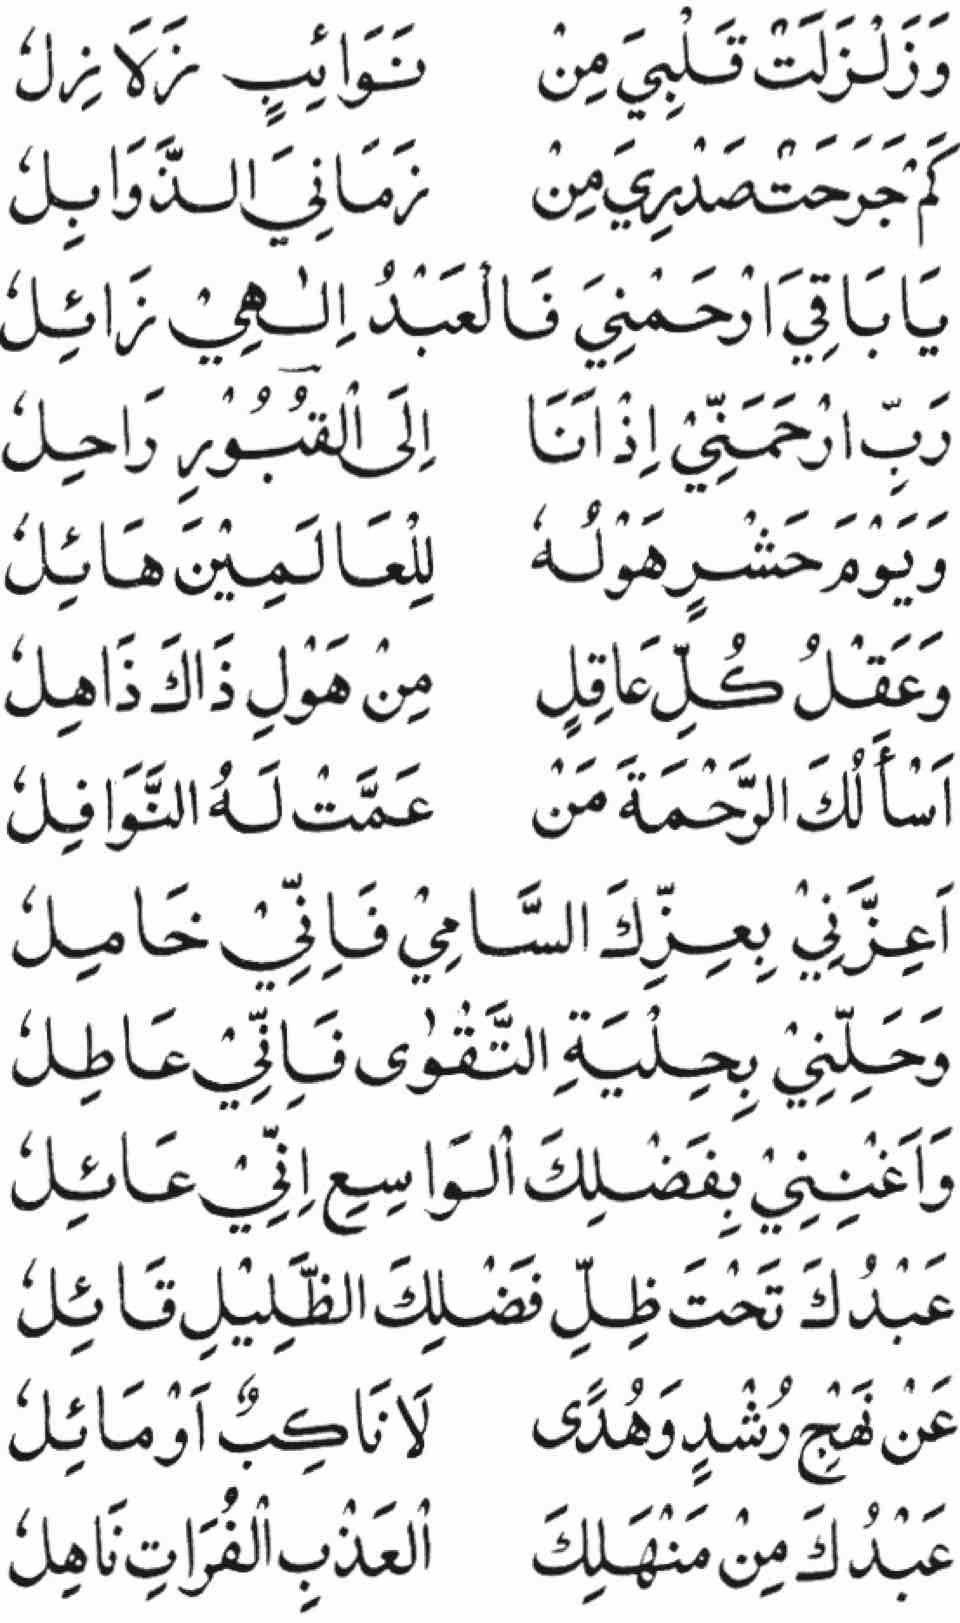 وَزَلْزَلَتْ قَلْبِيَ مِنْ نَوَائِبٍ زَلَازِلُ
كَمْ جَرَحَتْ صَدْرِيَ مِنْ زَمَانِيَ الذَّوَابِلُ
يَا بَاقِيَ ارْحَمْنِيَ فَالْعَبْدُ اِلٰهِيْ زَائِلُ
رَبِّ ارْحَمَنِّيْ اِذْ اَنَا اِلَى الْقُبُوْرِ رَاحِلُ
وَيَوْمَ حَشْرٍ هَوْلُهُ لِلْعَالَمِيْنَ هَائِلُ
وَعَقْلُ كُلِّ عَاقِلٍ مِنْ هَوْلِ ذَاكَ ذَاهِلُ
اَسْأَلُكَ الرَّحْمَةَ مَنْ عَمَّتْ لَهُ النَّوَافِلُ
اَعِزَّنِيْ بِعِزِّكَ السَّامِيْ فَاِنِّيْ خَامِلُ
وَحَلِّنِيْ بِحِلْيَةِ التَّقْوٰى فَاِنِّيْ عَاطِلُ
وَاَغْنِنِيْ بِفَضْلِكَ الْوَاسِعِ اِنِّيْ عَائِلُ
عَبْدُكَ تَحْتَ ظِلِّ فَضْلِكَ الظَّلِيْلِ قَائِلُ
عَنْ نَهْجِ رُشْدٍ وَهُدًى لَا نَاكِبٌ اَوْ مَائِلُ
عَبْدُكَ مِنْ مَنْهَلِكَ الْعَذْبِ الْفُرَاتِ نَاهِلُ